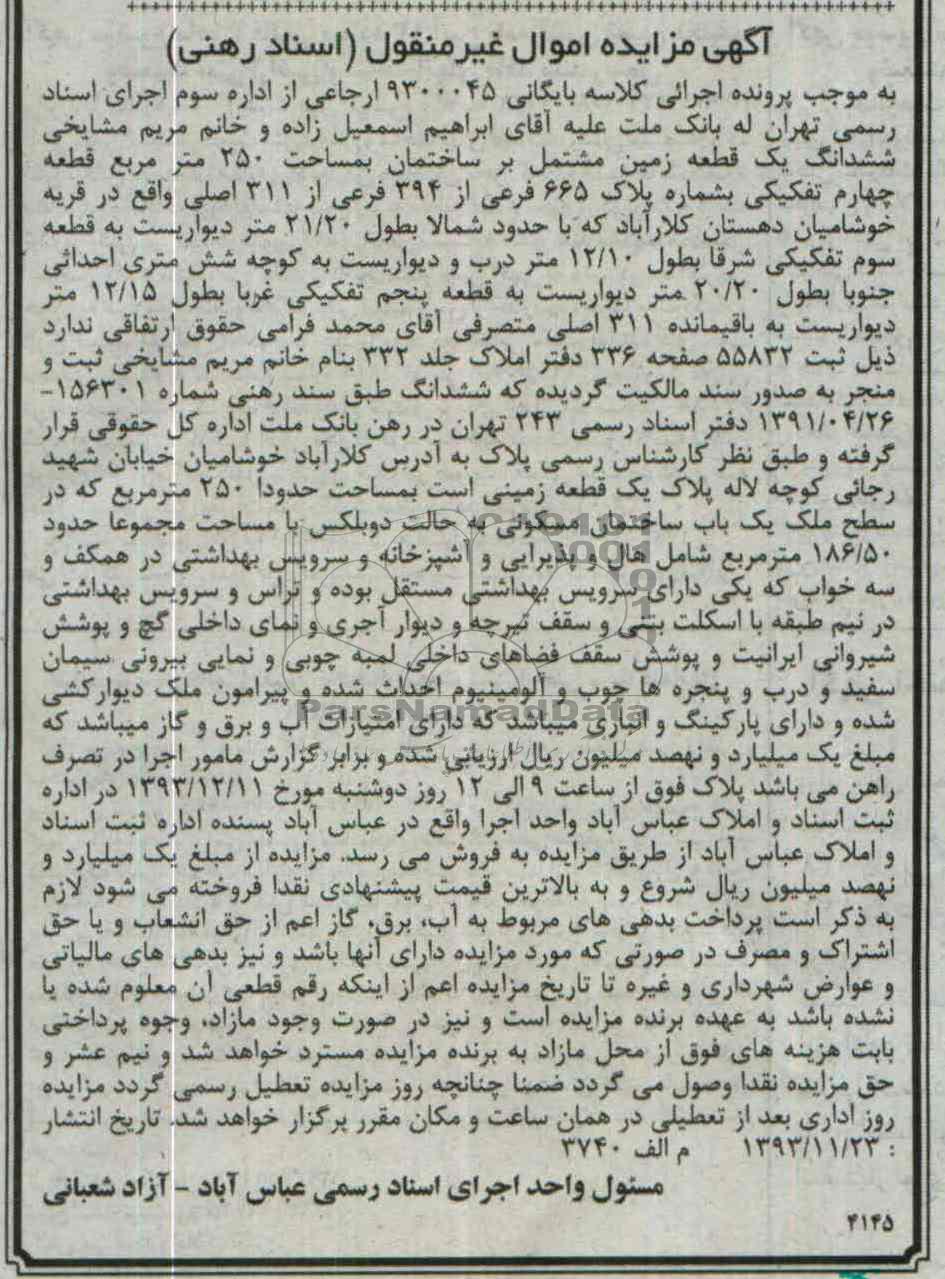 آگهی مزایده اموال غیرمنقول (اسناد رهنی)
به موجب پرونده اجرائی کلاسه بایگانی ۹۳۰۰۰۴۵ ارجاعی از اداره سوم اجرای اسناد
رسمی تهران له بانک ملت علیه آقای ابراهیم اسمعیل زاده و خانم مریم مشایخی
ششدانگ یک قطعه زمین مشتمل بر ساختمان بمساحت ۲۵۰ متر مربع قطعه
چهارم تفکیکی بشماره پلاک ۶۶۵ فرعی از ۳۹۴ فرعی از ۳۱۱ اصلی واقع در قریه
خوشامیان دهستان کلارآباد که با حدود شمالا بطول ۲۱/۲۰ متر دیواریست به قطعه
سوم تفکیکی شرقا بطول ۱۲/۱۰ متر درب و دیواریست به کوچه شش متری احداثی
جنوبا بطول ۲۰/۲۰ متر دیواریست به قطعه پنجم تفکیکی غربا بطول ۱۲/۱۵ متر
دیواریست به باقیمانده ۳۱۱ اصلی متصرفی آقای محمد فرامی حقوق ارتفاقی ندارد
ذیل ثبت ۵۵۸۳۲ صفحه ۳۳۶ دفتر املاک جلد ۳۳۲ بنام خانم مریم مشایخی ثبت و
منجر به صدور سند مالکیت گردیده که ششدانگ طبق سند رهنی شماره ۱۵۶۳۰۱-
۱۳۹۱/۰۴/۲۶ دفتر اسناد رسمی ۲۴۳ تهران در رهن بانک ملت اداره کل حقوقی قرار
گرفته و طبق نظر کارشناس رسمی پلاک به آدرس کلارآباد خوشامیان خیابان شهید
رجائی کوچه لاله پلاک یک قطعه زمینی است بمساحت حدودا ۲۵۰ مترمربع که در
سطح ملک یک باب ساختمان مسکونی به حالت دوبلکس با مساحت مجموعا حدود
۱۸۶/۵۰ مترمربع شامل هال و پذیرایی و آشپزخانه و سرویس بهداشتی در همکف و
سه خواب که یکی دارای سرویس بهداشتی مستقل بوده و تراس و سرویس بهداشتی
در نیم طبقه با اسکلت بتنی و سقف تیرچه و دیوار آجری و نمای داخلی گچ و پوشش
شیروانی ایرانیت و پوشش سقف فضاهای داخلی لمبه چوبی و نمایی بیرونی سیمان
سفید و درب و پنجره ها چوب و آلومینیوم احداث شده و پیرامون ملک دیوارکشی
شده و دارای پارکینگ و انباری میباشد که دارای امتیازات آب و برق و گاز میباشد که
مبلغ یک میلیارد و نهصد میلیون ریال ارزیابی شده و برابر گزارش مامور اجرا در تصرف
راهن می باشد پلاک فوق از ساعت ۹ الی ۱۲ روز دوشنبه مورخ ۱۳۹۳/۱۲/۱۱ در اداره
ثبت اسناد و املاک عباس آباد واحد اجرا واقع در عباس آباد پسنده اداره ثبت اسناد
و املاک عباس آباد از طریق مزایده به فروش می رسد. مزایده از مبلغ یک میلیارد و
نهصد میلیون ریال شروع و به بالاترین قیمت پیشنهادی نقدا فروخته می شود لازم
به ذکر است پرداخت بدهی های مربوط به آب، برق، گاز اعم از حق انشعاب و یا حق
اشتراک و مصرف در صورتی که مورد مزایده دارای آنها باشد و نیز بدهی های مالیاتی
و عوارض شهرداری و غیره تا تاریخ مزایده اعم از اینکه رقم قطعی آن معلوم شده یا
نشده باشد به عهده برنده مزایده است و نیز در صورت وجود مازاد، وجوه پرداختی
بابت هزینه های فوق از محل مازاد به برنده مزایده مسترد خواهد شد و نیم عشر و
حق مزایده نقدا وصول می گردد ضمنا چنانچه روز مزایده تعطیل رسمی گردد مزایده
روز اداری بعد از تعطیلی در همان ساعت و مکان مقرر برگزار خواهد شد. تاریخ انتشار
: ۱۳۹۳/۱۱/۲۳ م الف ۳۷۴۰
مسئول واحد اجرای اسناد رسمی عباس آباد - آزاد شعبانی
۴۱۴۵
ParsNamadData